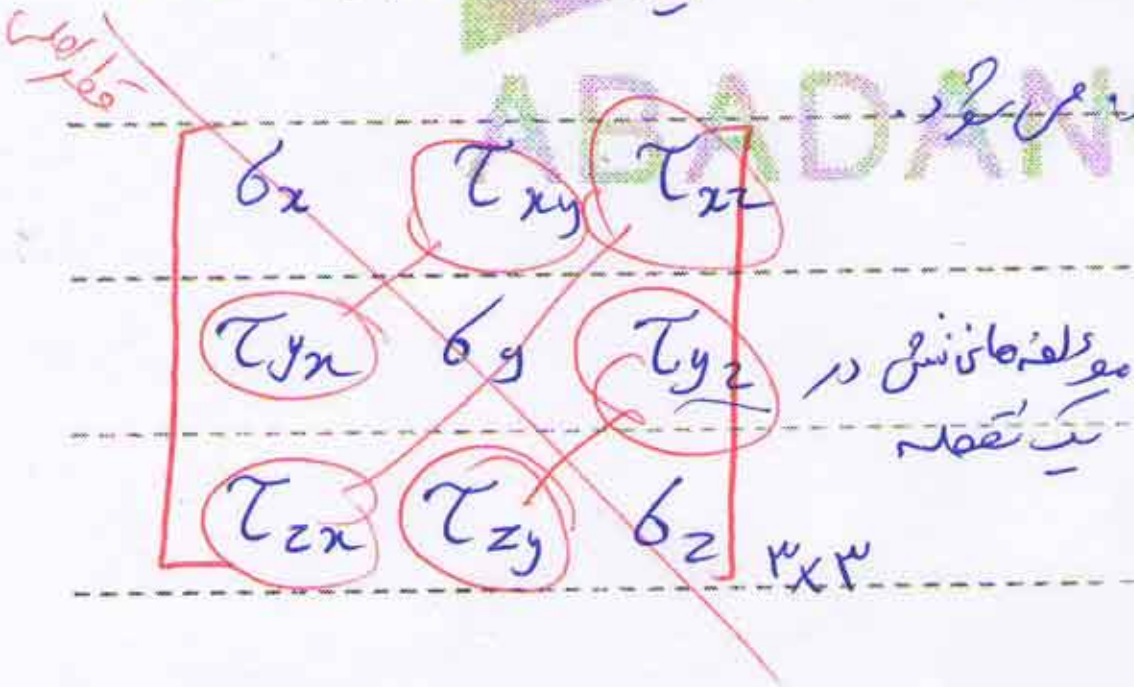 قطر اصلی
ABADAN
می شود.
σx τxy τxz
τyx σy τyz
τzx τzy σz ۳×۳
مؤلفه های تنش در
یک نقطه